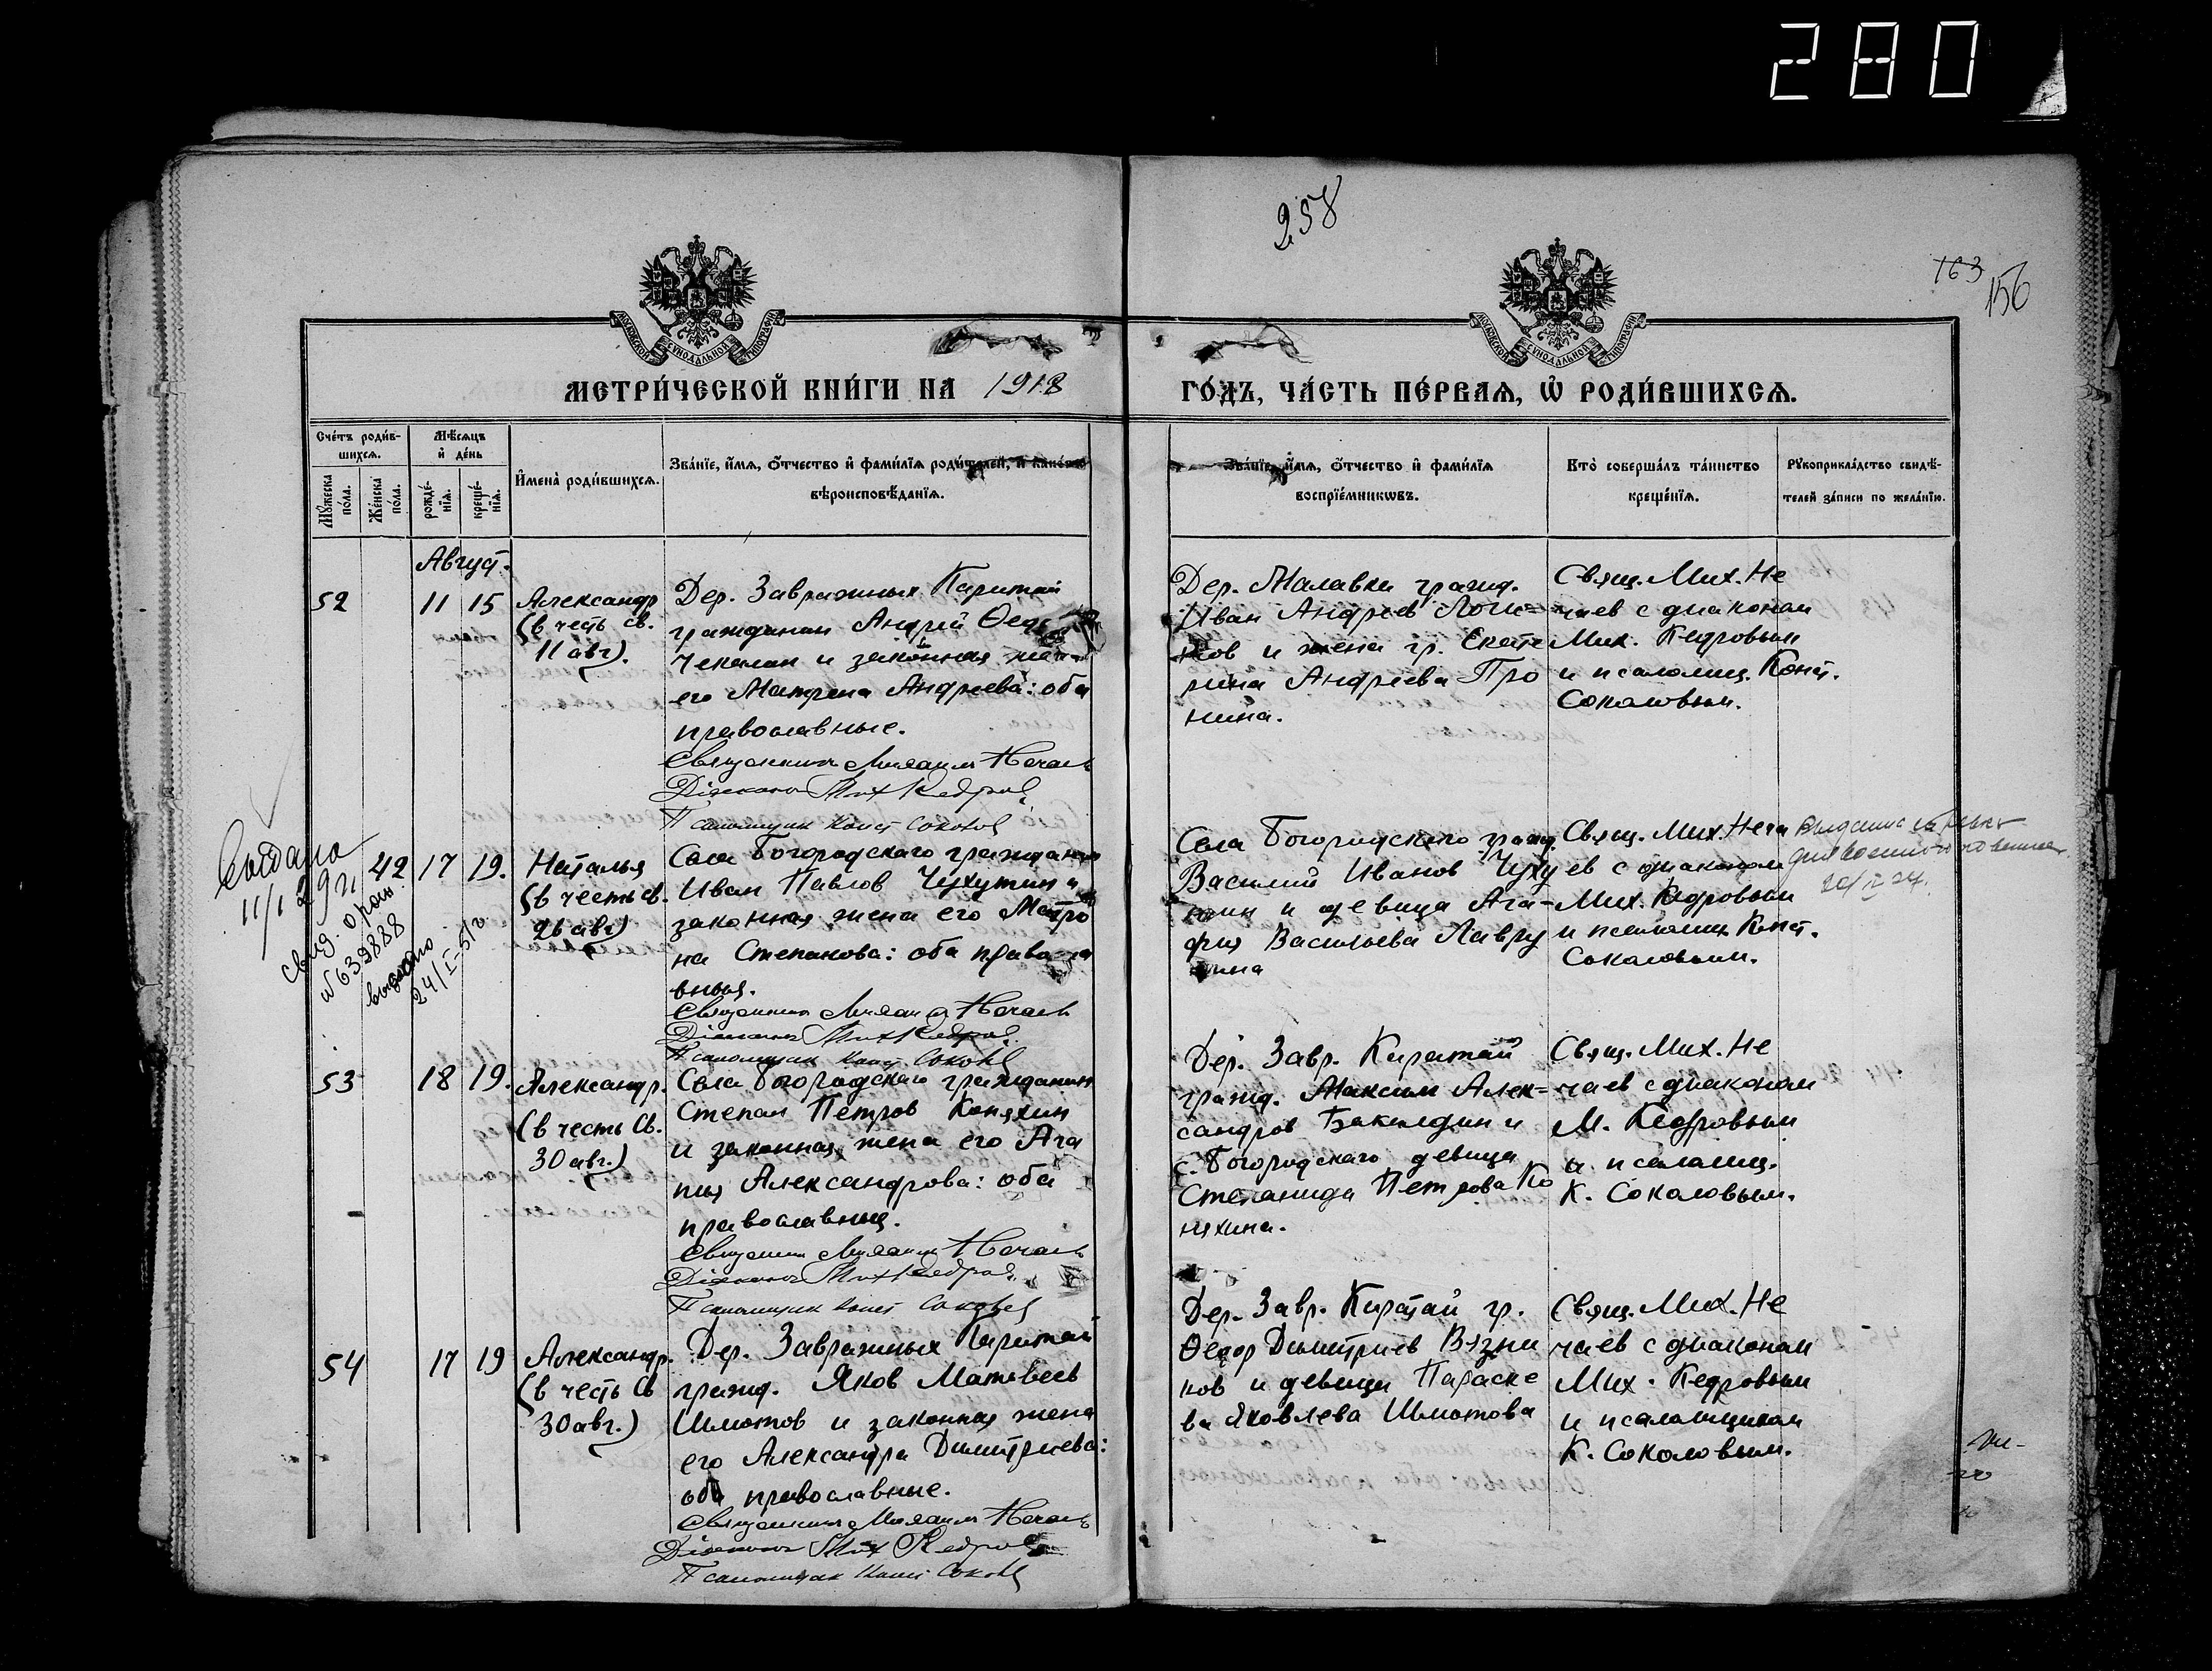 280
258
163
156
МОСКОВСКОЙ СУНОДАЛЬНОЙ ТИПОГРАФІИ
МОСКОВСКОЙ СУНОДАЛЬНОЙ ТИПОГРАФІИ
МЕТРИ́ЧЕСКОЙ КНИ́ГИ НА 1918
ГО́ДЪ, ЧА́СТЬ ПЕ́РВАѦ, Ѡ҆ РОДИ́ВШИХСѦ.
Сче́тъ роди́в-
шихсѧ.
Мꙋ́жеска по́ла.
Же́нска по́ла.
Мѣ́сѧцъ
и҆ де́нь
рожде́-
нїѧ.
креще́-
нїѧ.
И҆мена̀ роди́вшихсѧ.
Зва́нїе, и҆́мѧ, ѻ҆́тчество и҆ фами́лїѧ роди́телей, и҆ како́гѡ
вѣроисповѣ́данїѧ.
Зва́нїе, и҆́мѧ, ѻ҆́тчество и҆ фами́лїѧ
воспрїе́мникѡвъ.
Кто̀ соверша́лъ та́инство
креще́нїѧ.
Рꙋкоприкла́дство свидѣ́-
телей за́писи по жела́нїю.
Август.
52
11 15
Александр
(в честь св.
11 авг).
Дер. Завражных Киритай
гражданин Андрей Ѳед
Чекалин и законная жена
его Матрена Андреева: оба
православные.
Священник Михаил Нечаев
Діаконъ Мих Кедров
Псаломщик Конст Соколов
Дер. Малавки гражд.
Иван Андреев Логи-
нов и жена гр. Екате
рина Андреева Про
нина.
Свящ. Мих. Не
чаев с диаконом
Мих. Кедровым
и псаломщ. Конст.
Соколовым.
Выдано
11/I 29 г.
свид. о рож.
№ 639888
выдано
24/I-51г
42
17 19.
Наталья
(в честь св.
26 авг)
Села Богородскаго гражданин
Иван Павлов Чухутин и
законная жена его Матро
на Степанова: оба правосла
вныя.
Священник Михаил Нечаев
Діаконъ Мих Кедров
Псаломщик Конст Соколов
Села Богородскаго гражд.
Василий Иванов Чуху
тин и девица Ага-
фия Васильева Лавру
шина
Свящ. Мих. Неча
ев с диаконом
Мих. Кедровым
и псаломщ. Конст.
Соколовым.
53
18 19.
Александр.
(в честь Св.
30 авг.)
Села Богородскаго гражданин
Степан Петров Коняхин
и законная жена его Ага
пия Александрова: оба
православныя.
Священник Михаил Нечаев
Діаконъ Мих Кедров
Псаломщик Конст Соколов
Дер. Завр. Киритай
гражд. Максим Алек-
сандров Бакилдин и
с. Богородскаго девица
Степанида Петрова Ко
няхина.
Свящ. Мих. Не
чаев с диаконом
М. Кедровым
и псаломщ.
К. Соколовым.
54
17 19
Александр.
(в честь Св
30 авг.)
Дер. Завражных Киритай
гражд. Яков Матвеев
Шмотов и законная жена
его Александра Димитриева:
оба православные.
Священник Михаил Нечаев
Діаконъ Мих Кедров
Псаломщик Конст Соколов
Дер. Завр. Киритай гр.
Ѳедор Димитриев Вязни
ков и девица Параске
ва Яковлева Шмотова
Свящ. Мих. Не
чаев с диаконом
Мих. Кедровым
и псаломщиком
К. Соколовым.